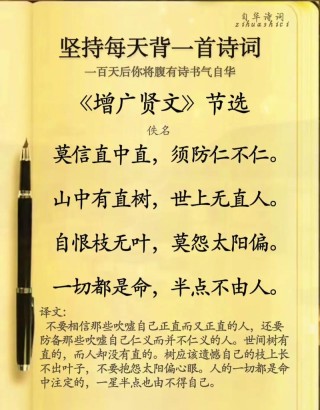 自华诗词
zihuashici
坚持每天背一首诗词
一百天后你将腹有诗书气自华
《增广贤文》节选
佚名
莫信直中直，须防仁不仁。
山中有直树，世上无直人。
自恨枝无叶，莫怨太阳偏。
一切都是命，半点不由人。
译文：
不要相信那些吹嘘自己正直而又正直的人，还要
防备那些吹嘘自己仁义而并不仁义的人。世间树有
直的，而人却没有直的。树应该遗憾自己的枝上长
不出叶子，不要抱怨太阳偏心眼。人的一切都是命
中注定的，一星半点也由不得自己。